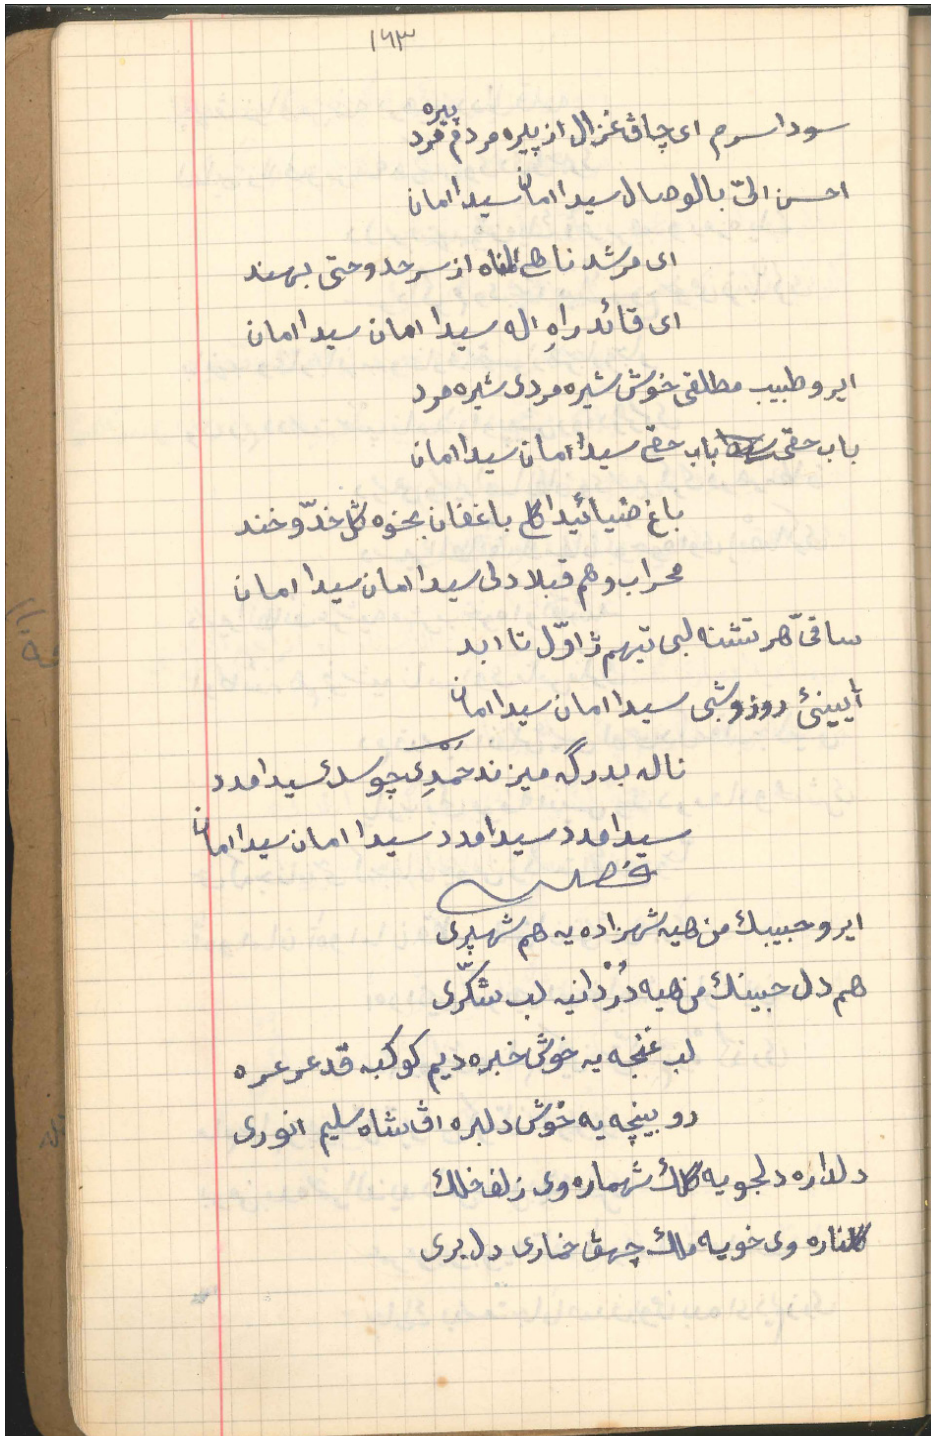 ١٦٣
سودا سرم ای چاڤ غزال از پیره مردم پیره مرد
احسن الیّ بالوصال سیدا امان سیدا امان
ای مرشد ناهی المناه از سرحد و حتی بهند
ای قائد راهِ اله سیدا امان سیدا امان
ایرو طبیب مطلقی خوش شیره مردی شیره مرد
باب حقی باب حقی سیدا امان سیدا امان
باغ ضیائیدا گلم باغفان بخوه گل خدّ و خند
محراب و هم قبلا دلی سیدا امان سیدا امان
ساقیّ هر تشنه لبی تیهم ژ اوّل تا ابد
آیینئ روز و شبی سیدا امان سیدا امان
ناله بدرگه میزند حَمْدِی چو سدئ سیدا مدد
سیدا مدد سیدا مدد سیدا امان سیدا امان
ایرو حبیبك من هیه شهزاده یه هم شهپری
هم دل جبینك من هیه دُرْدانیه لب شکّری
لب غنجه یه خوش خبره دیم کوکبه قد عرعره
رو بینچه یه خوش دلبره اڤ شاه سلیم انوری
دلداره دلجویه گلك شهماره وی زلف خلك
گلناره وی خویه ملك چهڤ خماری دل بری